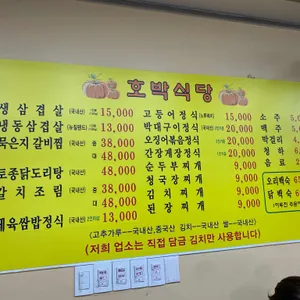 호박식당
생삼겹살 (국내산) 15,000
냉동삼겹살 (뉴질랜드) 13,000
묵은지갈비찜 (국내산) 중 38,000
대 48,000
토종닭도리탕 (국내산) 48,000
갈치조림 중 38,000
대 48,000
제육쌈밥정식 (국내산) 2인이상 13,000
고등어정식 (노르웨이) 15,000
박대구이정식 15,000
오징어볶음정식 12,000
간장게장정식
순두부찌개 9,000
청국장찌개 9,000
김치찌개 9,000
된장찌개 9,000
소주
맥주
막걸리
청하
음료
오리백숙
닭백숙
(고추가루--국내산,중국산 김치--국내산 쌀--국내산)
(저희 업소는 직접 담금 김치만 사용합니다)